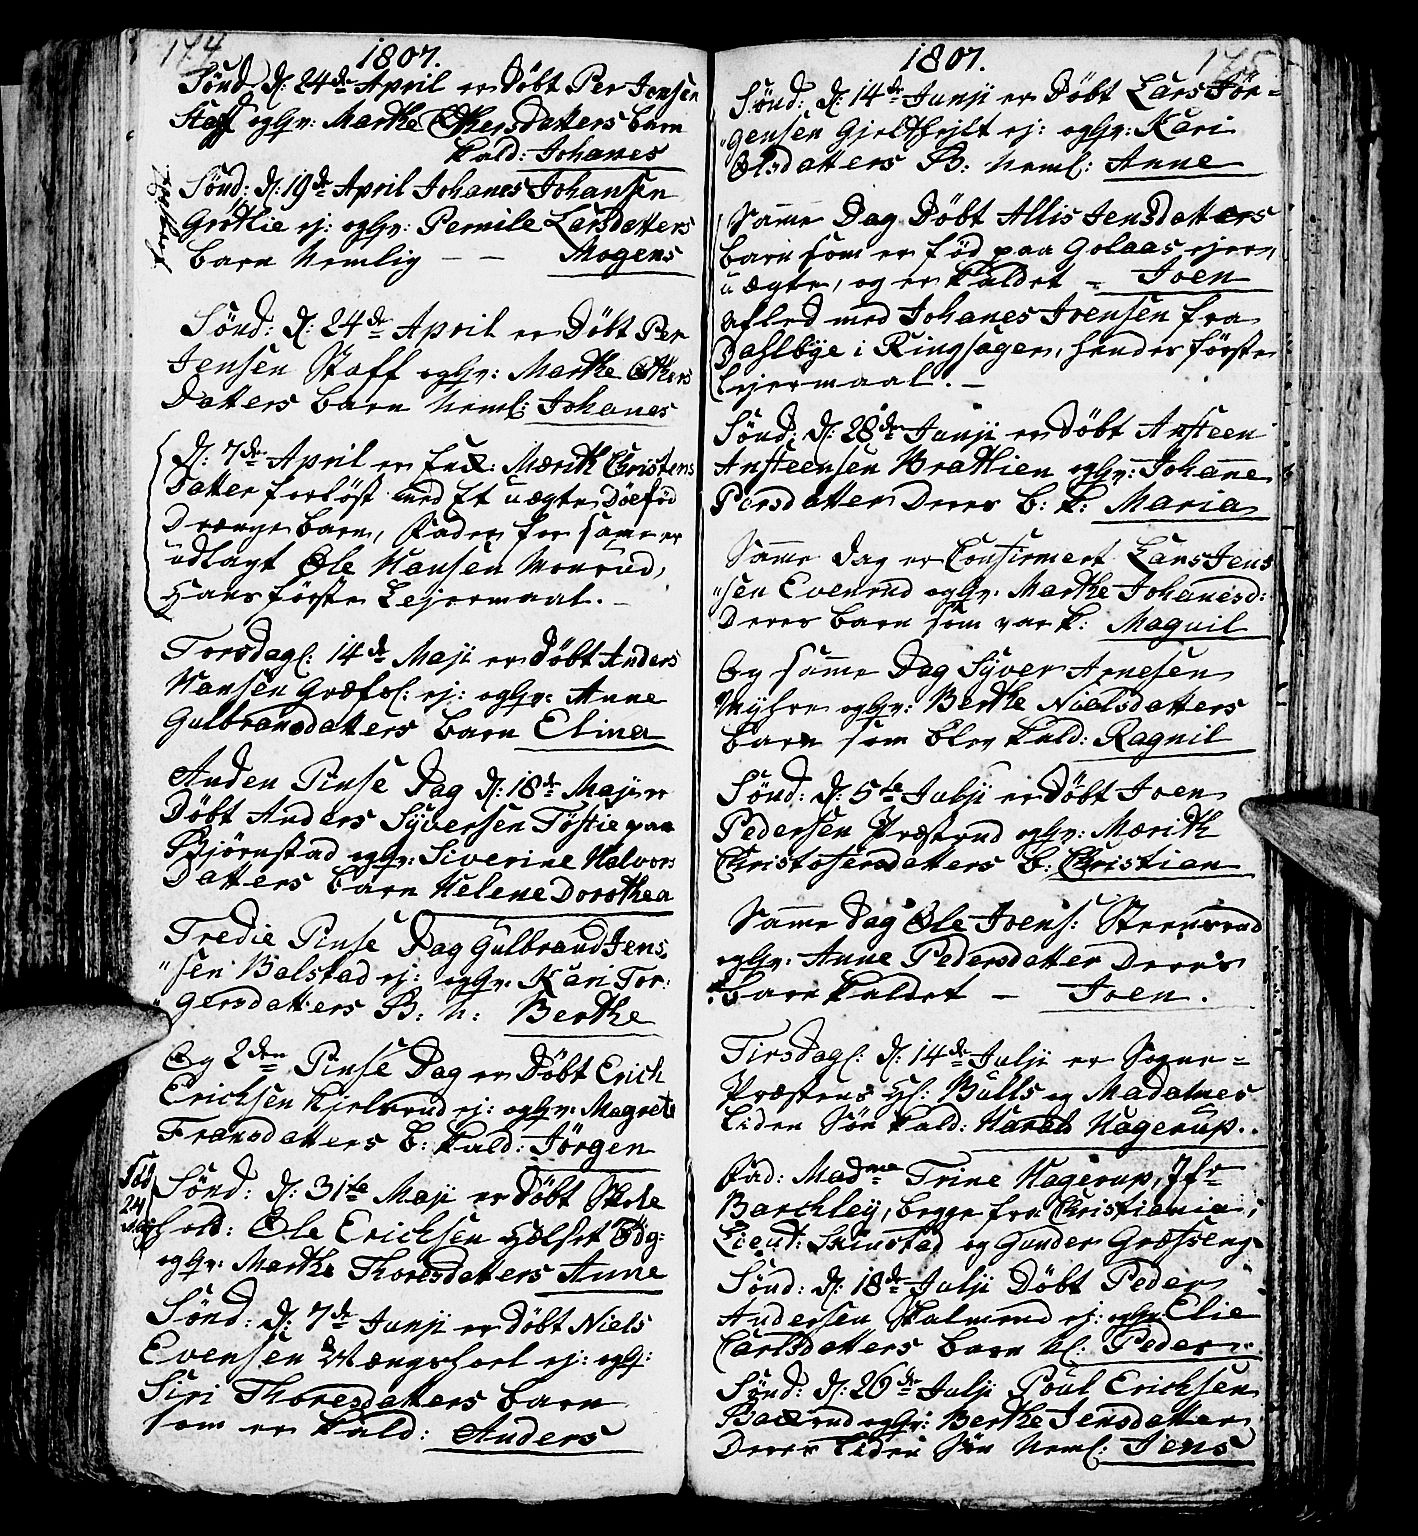 174
1807.
Sönd: D: 24de April er Döbt Per Jensen
Staff og Hr: Marthe Othersdatters barn
kald: Johanes
Sönd: D: 19de April Johanes Johansen
Grøtlie ej: og Hr: Pernile Larsdatters
barn Nemlig - - Mogens
Sönd: D: 24de April er Döbt Per
Jensen Staff og Hr: Marthe Others
Datters barn Neml: Johanes
D: 7de April er Enk: Mærith Christens
Datter forløst med Et uægte Döefød
Drænge barn, Fader for samme er
udlagt Ole Hansen Monrud,
Hans første Lejermaal. -
Torsdag: 14de Maji er Döbt Anders
Hansen Græfsl: ej: og Hr: Anne
Gulbransdatters barn Elina
Anden Pinse Dag D: 18de Maji er
Döbt Anders Syversen Töstie paa
Björnstad og Hr: Siverine Halvors
Datters barn Helene Dorothea
Tredie Pinse Dag Gulbrand Jens
"sen Balstad ej: og Hr: Kari Tor:
"gersdatters B: N: Berthe
Og 2den Pinse Dag er Döbt Erich
Erichsen Kjelsrud ej: og Hr: Magrete
Fransdatters b: kald: Jörgen
Föd
24
Maj
Sönd: D: 31te Maji er Döbt Skole
hold: Ole Erichsen Hölset
og Hr: Marthe Thoresdatters Anne
Sönd: D: 7de Junji er Döbt Niels
Evensen Vængshoel ej: og Hr:
Siri Thoresdatters barn
som er kald: Anders
175
1807.
Sönd: D: 14de Junji er Döbt Lars Jör-
"gensen ej: og Hr: Kari
Olsdatters B: Neml: Anne
Samme Dag Döbt Allis Jensdatters
barn som er föd paa Golaas ejer,
uægte, og er kaldet - Joen
afled med Johanes Ivensen fra
Dahlbye i Ringsager, hendes første
Lejermaal. -
Sönd: D: 28de Junji er Döbt Ansteen
Ansteensen Brathien og Hr: Johanne
Persdatter Deres b: k: Maria
Samme Dag er Confirmert Lars Jens
"sen Evenrud og Hr: Marthe Johanesd:
Deres barn som var k: Magnil
Og samme Dag Syver Arnesen
Myhre og Hr: Berthe Nielsdatters
barn som blev kald: Ragnil
Sönd: D: 5te Julji er Döbt Joen
Pedersen Præstrud og Hr: Mærith
Christofersdatters b: Christian
Samme Dag Ole Joens: Steensrud
og Hr: Anne Pedersdatter Deres
barn kaldet - Joen.
Tirsdag: D: 14de Julji er Sogne-
Præstens Hr: Bulls og Madames
Liden Sön kald: Hagerup..
Fad: Madme Trine Hagerup, Jfr
Barchley, begge fra Christiania,
Lieut: Skinstad og Gunder Græsseng
Sönd: D: 18de Julji Döbt Peder
Andersen ej: og Hr: Elie
Carlsdatters barn N: Peder.
Sönd: D: 26de Julji Poul Erichsen
Bakrud og Hr: Berthe Jensdatter
Deres liden Sön Neml: Jens